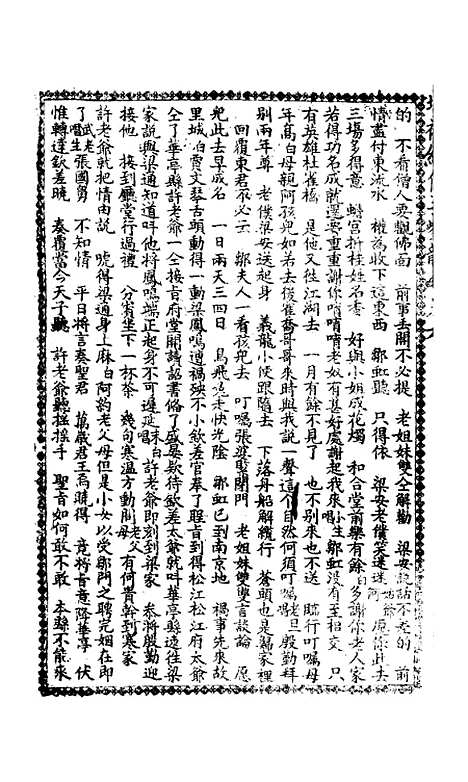 的 不看僧人要觀佛面 前事丟開不必提 老姐妹雙全解勸 梁安說話不差的 前
情盡付東流水 權為收下這東西 鄒虹聽 只得依 梁安老僕笑迷迷 阿 姑爺 願你此去
三場多得意 蟾宮折桂姓名香 好與小姐成花燭 和合堂前樂有餘 白 多謝你老人家
若得功名成就還要重重謝你嘖 嘖嘖老奴有甚好處謝起我來 小生 鄒虹沒有至相交 只
有英雄杜雀橋 是他又往江湖去 一月有餘不見了 也不別來也不送 臨行叮囑母
年高 白 母親阿孩兒如若去後崔喬哥哥來時與我說一聲這個自然何須叮囑 唱 旦 殷勤拜
別兩年尊 老僕梁安送起身 義龍小使跟隨去 下落舟船解纜行 蒼頭也是歸家裡
回覆東君不必云 鄒夫人一看孩兒去 叮囑張婆緊閉門 老姐妹雙雙言談論 願
兒此去早成名 一日兩天三四日 烏飛兔走快光陰 鄒虹已到南京地 禍事先來故
里城 伯賈文琴舌頭動得一動梁鳳鳴遭禍殃不小欽差官奉了聖旨到得松江松江府太爺
仝了華亭縣許老爺一仝接官府堂開讀詔書備了盛宴款待欽差太爺就叫華亭縣速往梁
家說與梁通知道叫他將鳳鳴端正起身不可遲延 唱 末白 許老爺即刻到梁家 參將殷勤迎
接他 接到廳堂行過禮 分賓坐下一杯茶 幾句寒溫方動問 老父母 有何貴幹到寒家
許老爺就把情由說 唬得梁通身上麻 白 阿喲老父母但是小女以受鄒門之聘完姻在即
了 武老唱生 張國勇 不知情 平日將言奏聖君 萬歲君王焉曉得 竟將旨意降華亭 伏
惟轉達欽差曉 奏覆當今天子聽 許老爺總搖手 聖旨如何敢不敢 本縣不能